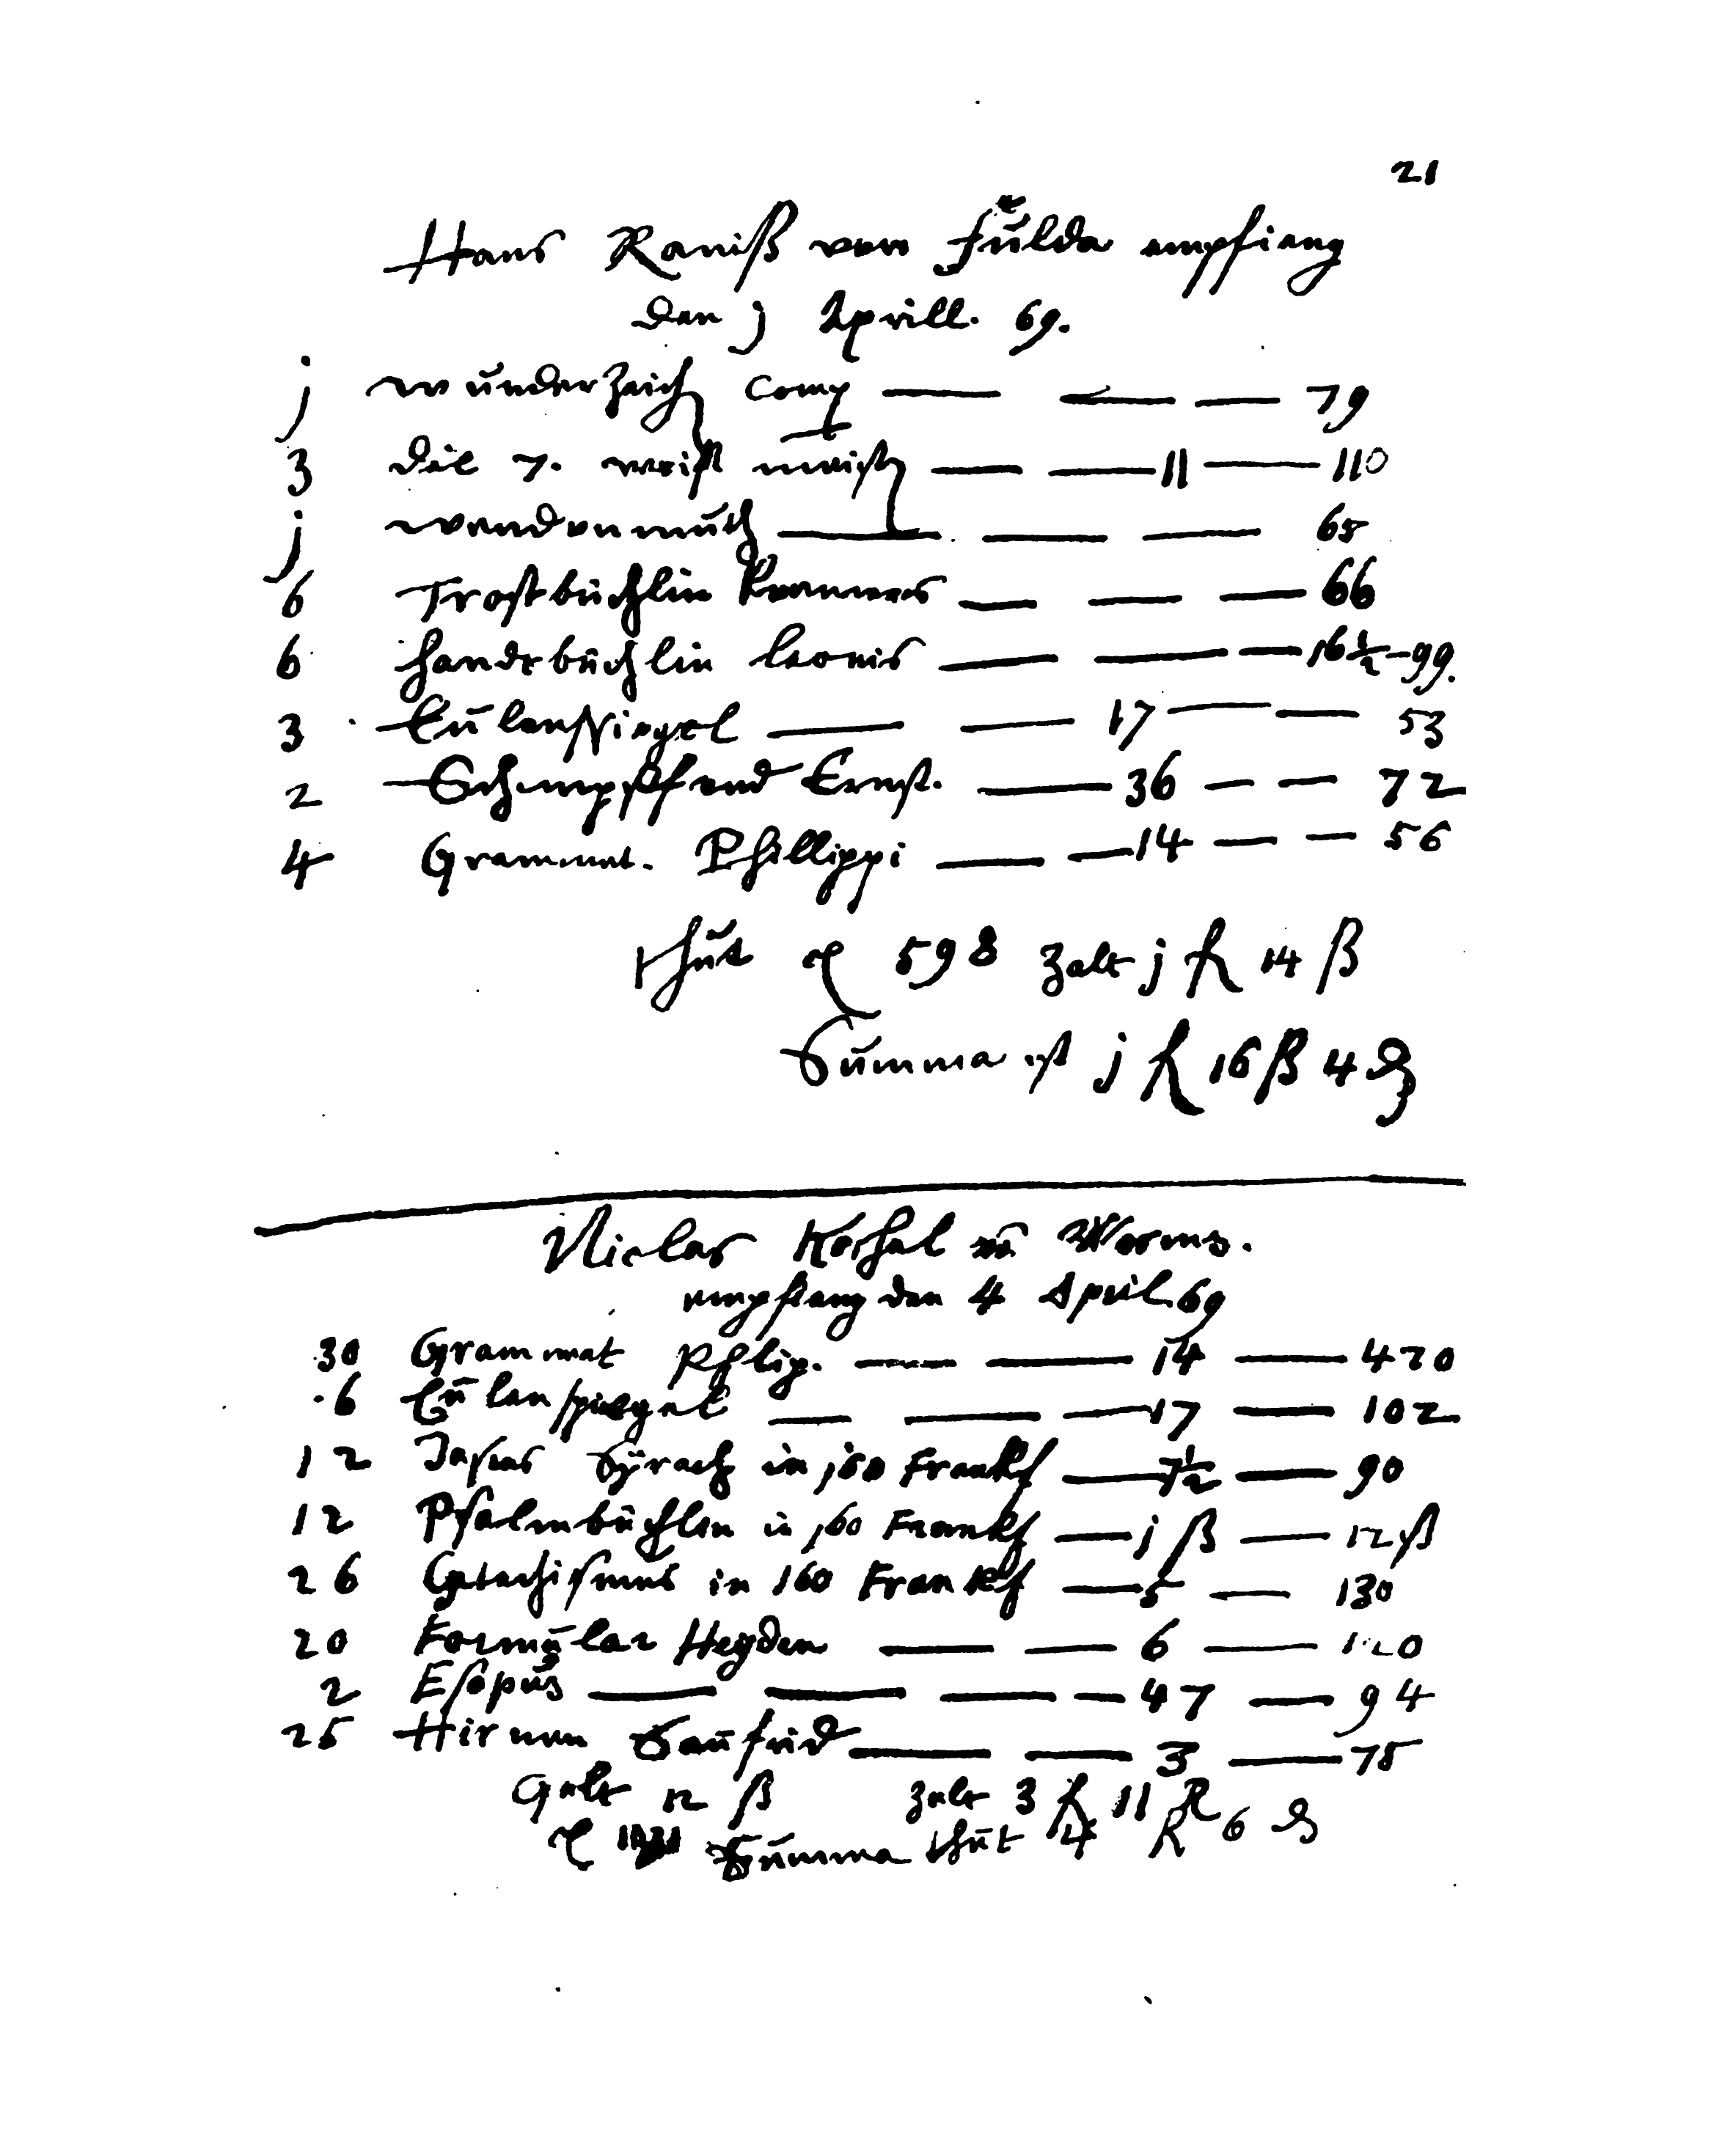 21
Hans Raniß von Fulda empfieng
den j Aprill. 69.
j wunderzeich comp — — — 79
3 die 7. weiß meist — — 11 — 110
j wendenmuth — — — 65
6 Trostbüchlin — — — 66
6 handtbüchlin leonis — — — 16½ — 99.
3 Eulenspiegel — — 17 — — 53
2 Schimpff und Ernst. — 36 — — 72
4 Grammat. Phillippi — — 14 — — 56
thut 598 zalt j fl 14 ß
Summa ist j fl 16 ß 4 ₰
Niclas Köchel zu Worms.
empfieng den 4 April 69
30 Grammat Philip. — — 14 — 420
6 Eulenspiegel — — — 17 — 102
12 Jesus Syrach in j60 Franckf — 7½ — 90
12 Psalmbüchlin in j60 Franckf — j ß — 12 ß
26 Catechismus in 160 Franckf — 5 — 130
20 Formular Heyden — — 6 — 120
2 Esopus — — — — 47 — 94
25 Hirnen — — 3 — 75
Gelt 12 ß zalt 3 fl 11 ß
Summa thut 4 fl 6 ₰